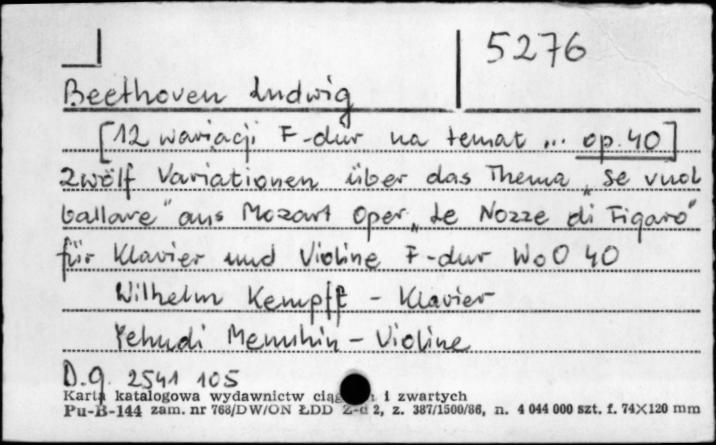 5276
Beethoven Ludwig
[12 wariacji F-dur na temat ... op. 40]
Zwölf Variationen über das Thema „Se vuol
ballare" aus Mozart Oper „Le Nozze di Figaro"
für Klavier und Violine F-dur WoO 40
Wilhelm Kempff - Klavier
Yehudi Menuhin - Violine
D.g. 2541 105
Karta katalogowa wydawnictw i zwartych
Pu-B-144 zam. nr 768/DW/ON ŁDD 2, z. 387/1500/86, n. 4 044 000 szt. f. 74×120 mm